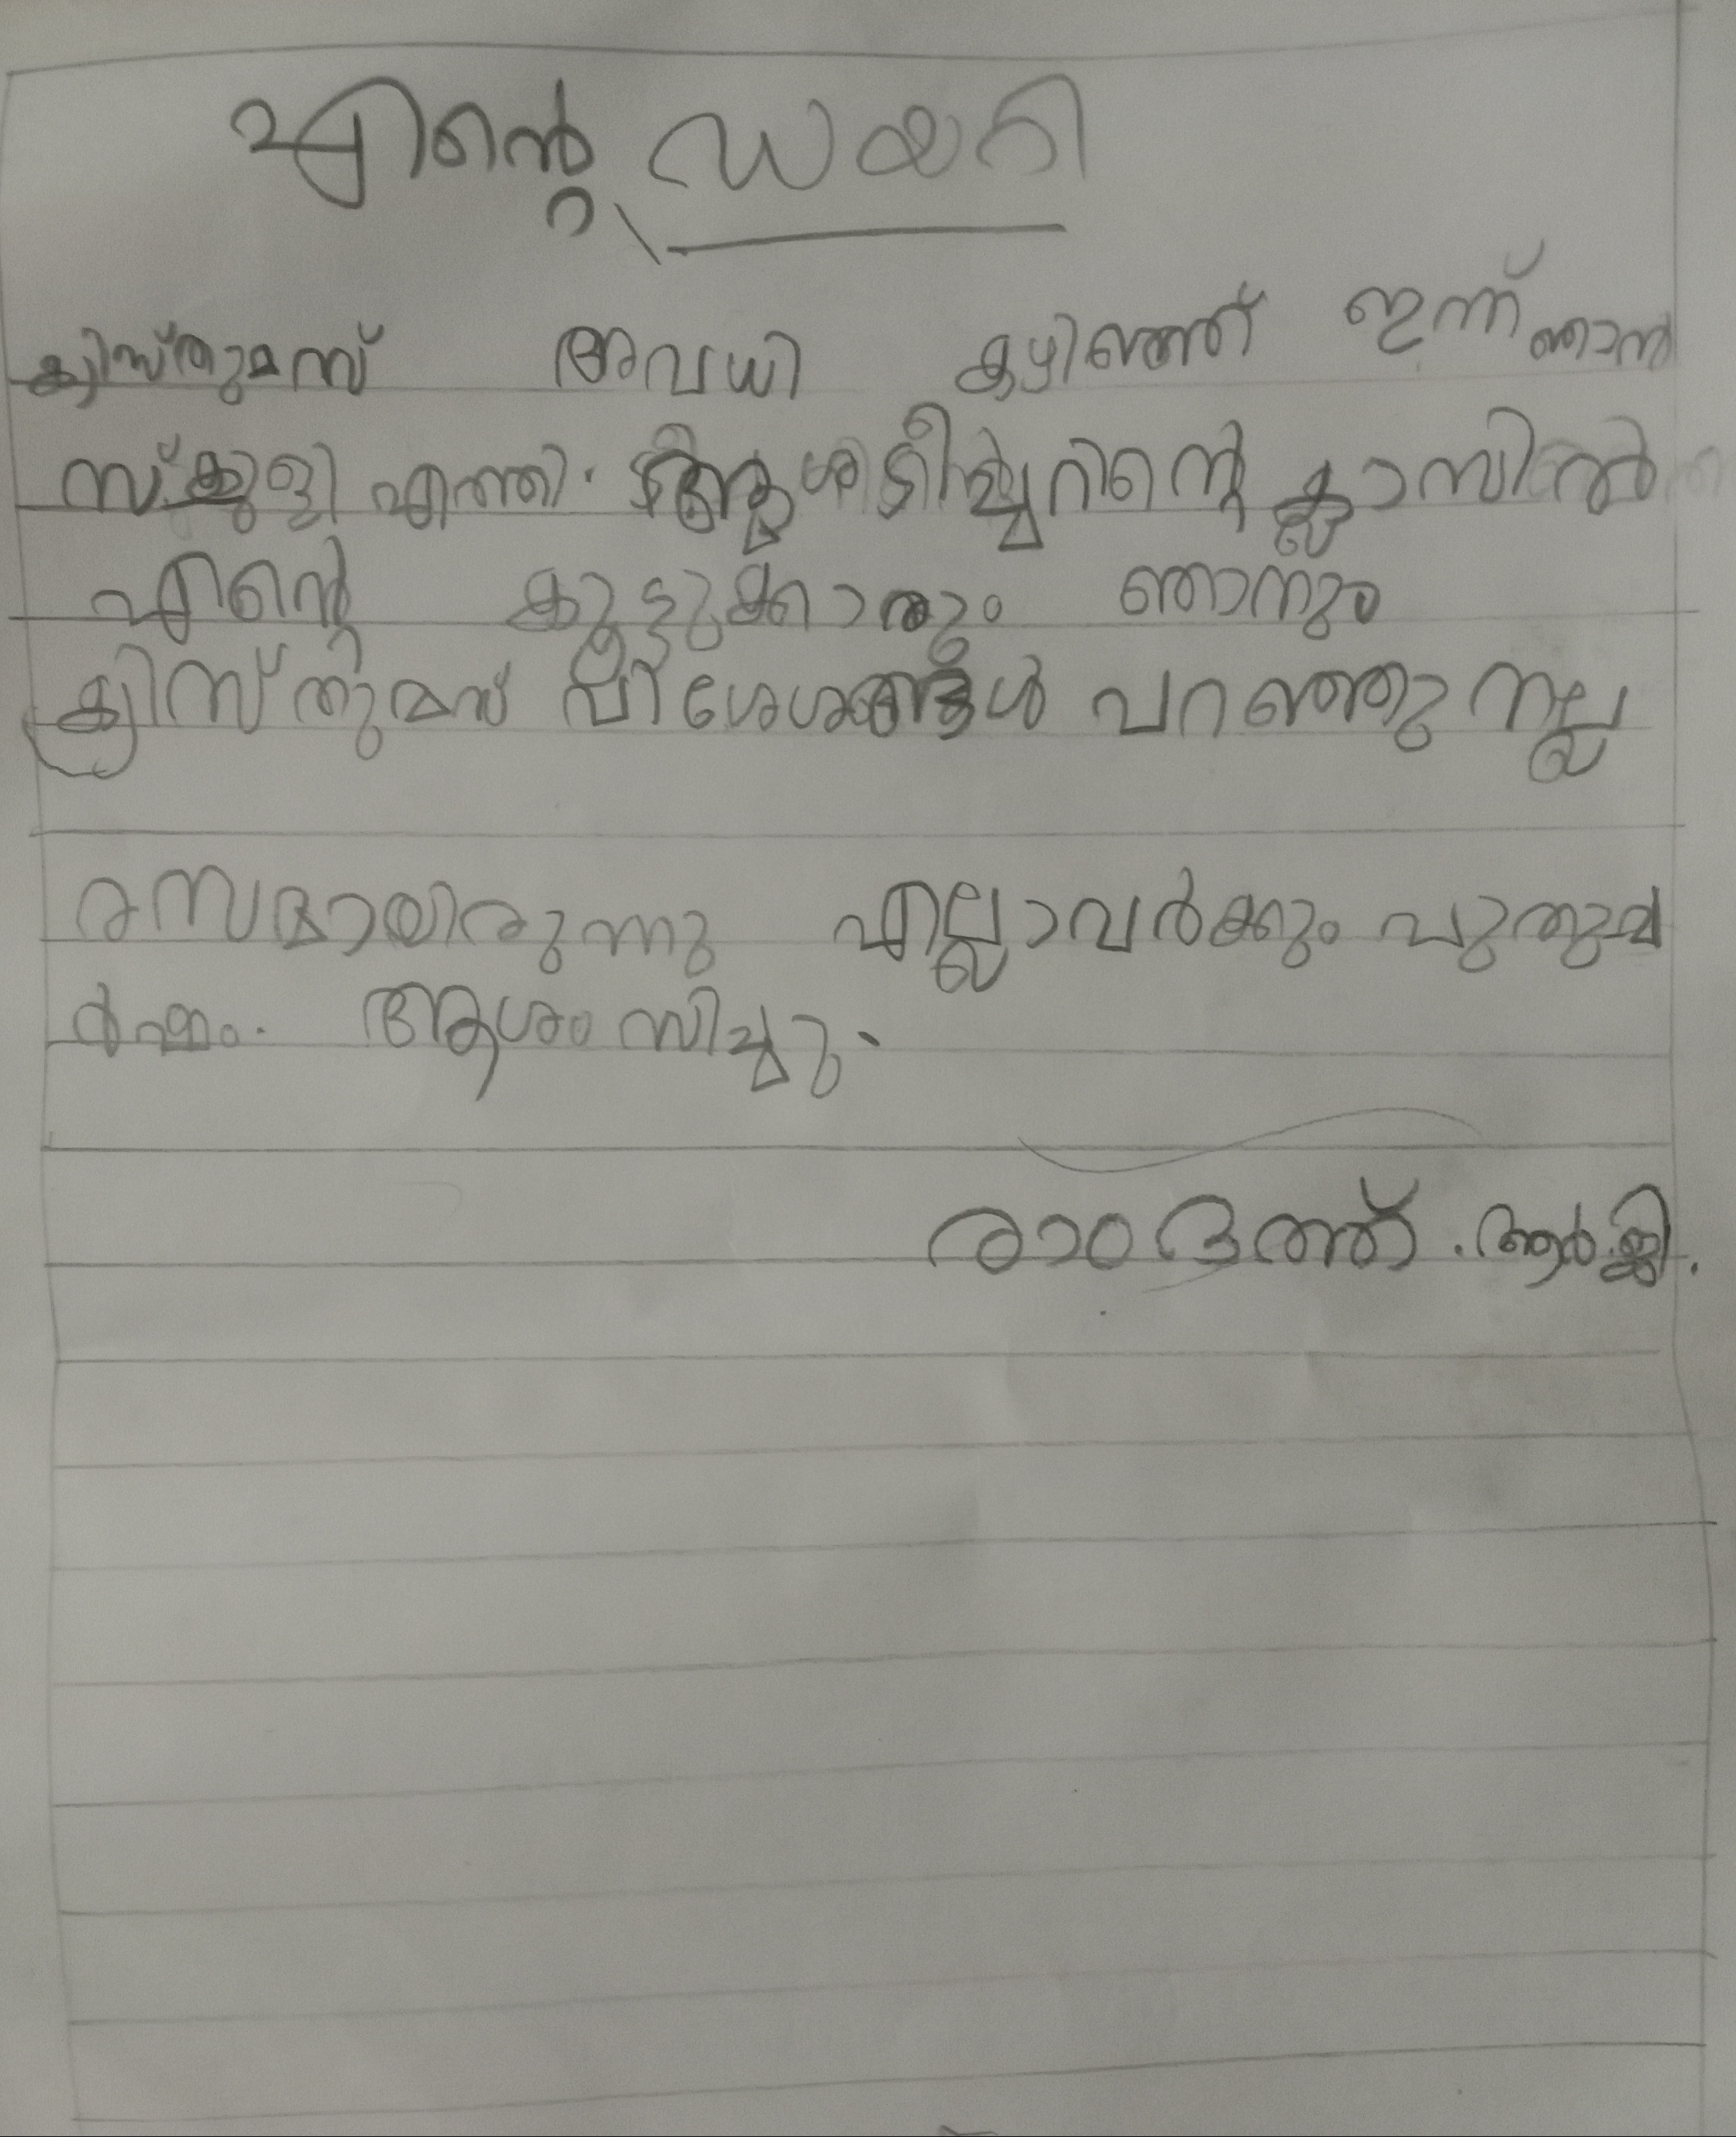 എിന്റെ ഡയറി
ക്യിസ്തുമസ് അവധി കഴിഞ്ഞ് ഇന്ന് ഞാൻ
സ്ക്കുളി എത്തി. ടീച്ചറിന്റെ ക്ലാസിൽ
എിന്റെ കൂട്ടുക്കാരും ഞാനും
ക്രിസ്തുമസ് വിശേശങ്ങൾ പറഞ്ഞു നല്ല
രസമായിരുന്നു എല്ലാവർക്കും പുതുവ
ർഷം. ആശംസിച്ചു.
രാംദത്ത്. ആർ.ജി.